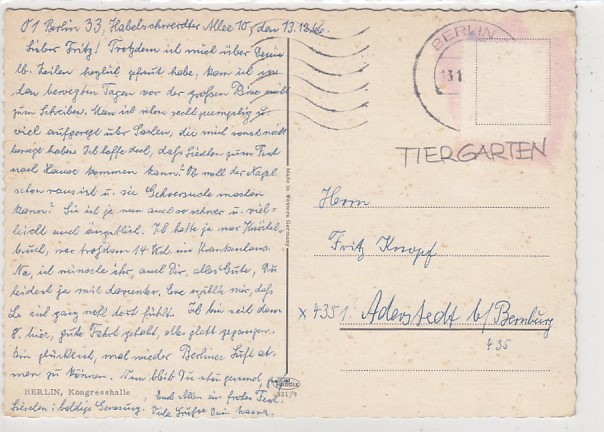 01 Berlin 33, Habelschwerdter Allee 10, den 13.12.66
Lieber Fritz! Trotzdem ich mich über Deine
lb. Zeilen herzlich gefreut habe, kam ich
den bewegten Tagen vor der großen Reise nicht
zum Schreiben. Man ist eben nicht
viel aufgeregt über Sachen, die mich sonst nicht
bewegt haben. Ich hoffe doch, daß zum Fest
nach Hause kommen kann. Ob mal der Nagel
schon raus ist u. sie Gehversuche machen
kann? Sie ist ja nun auch so schwer u. viel-
leicht auch ängstlich. Ich hatte ja nur Knöchel-
bruch, war trotzdem 14 im Krankenhaus.
Na, ich wünsche ihr, auch Dir, alles Gute, Du
leidest ja mit darunter. Eve erzählte mir, daß
sich ganz wohl dort fühlt. Ich bin seit dem
8. hier, gute Fahrt gehabt, alles glatt gegangen.
Bin glücklich, mal wieder Berliner Luft at-
men zu können. Nun bleib Du schön gesund,
BERLIN, Kongresshalle
und Allen ein frohes Fest.
baldige Genesung. Viele Grüße Dein
Made in Western Germany
921/9
BERLIN
13.1
TIERGARTEN
Herrn
Fritz Knopf
x 4351 Aderstedt b/Bernburg
435